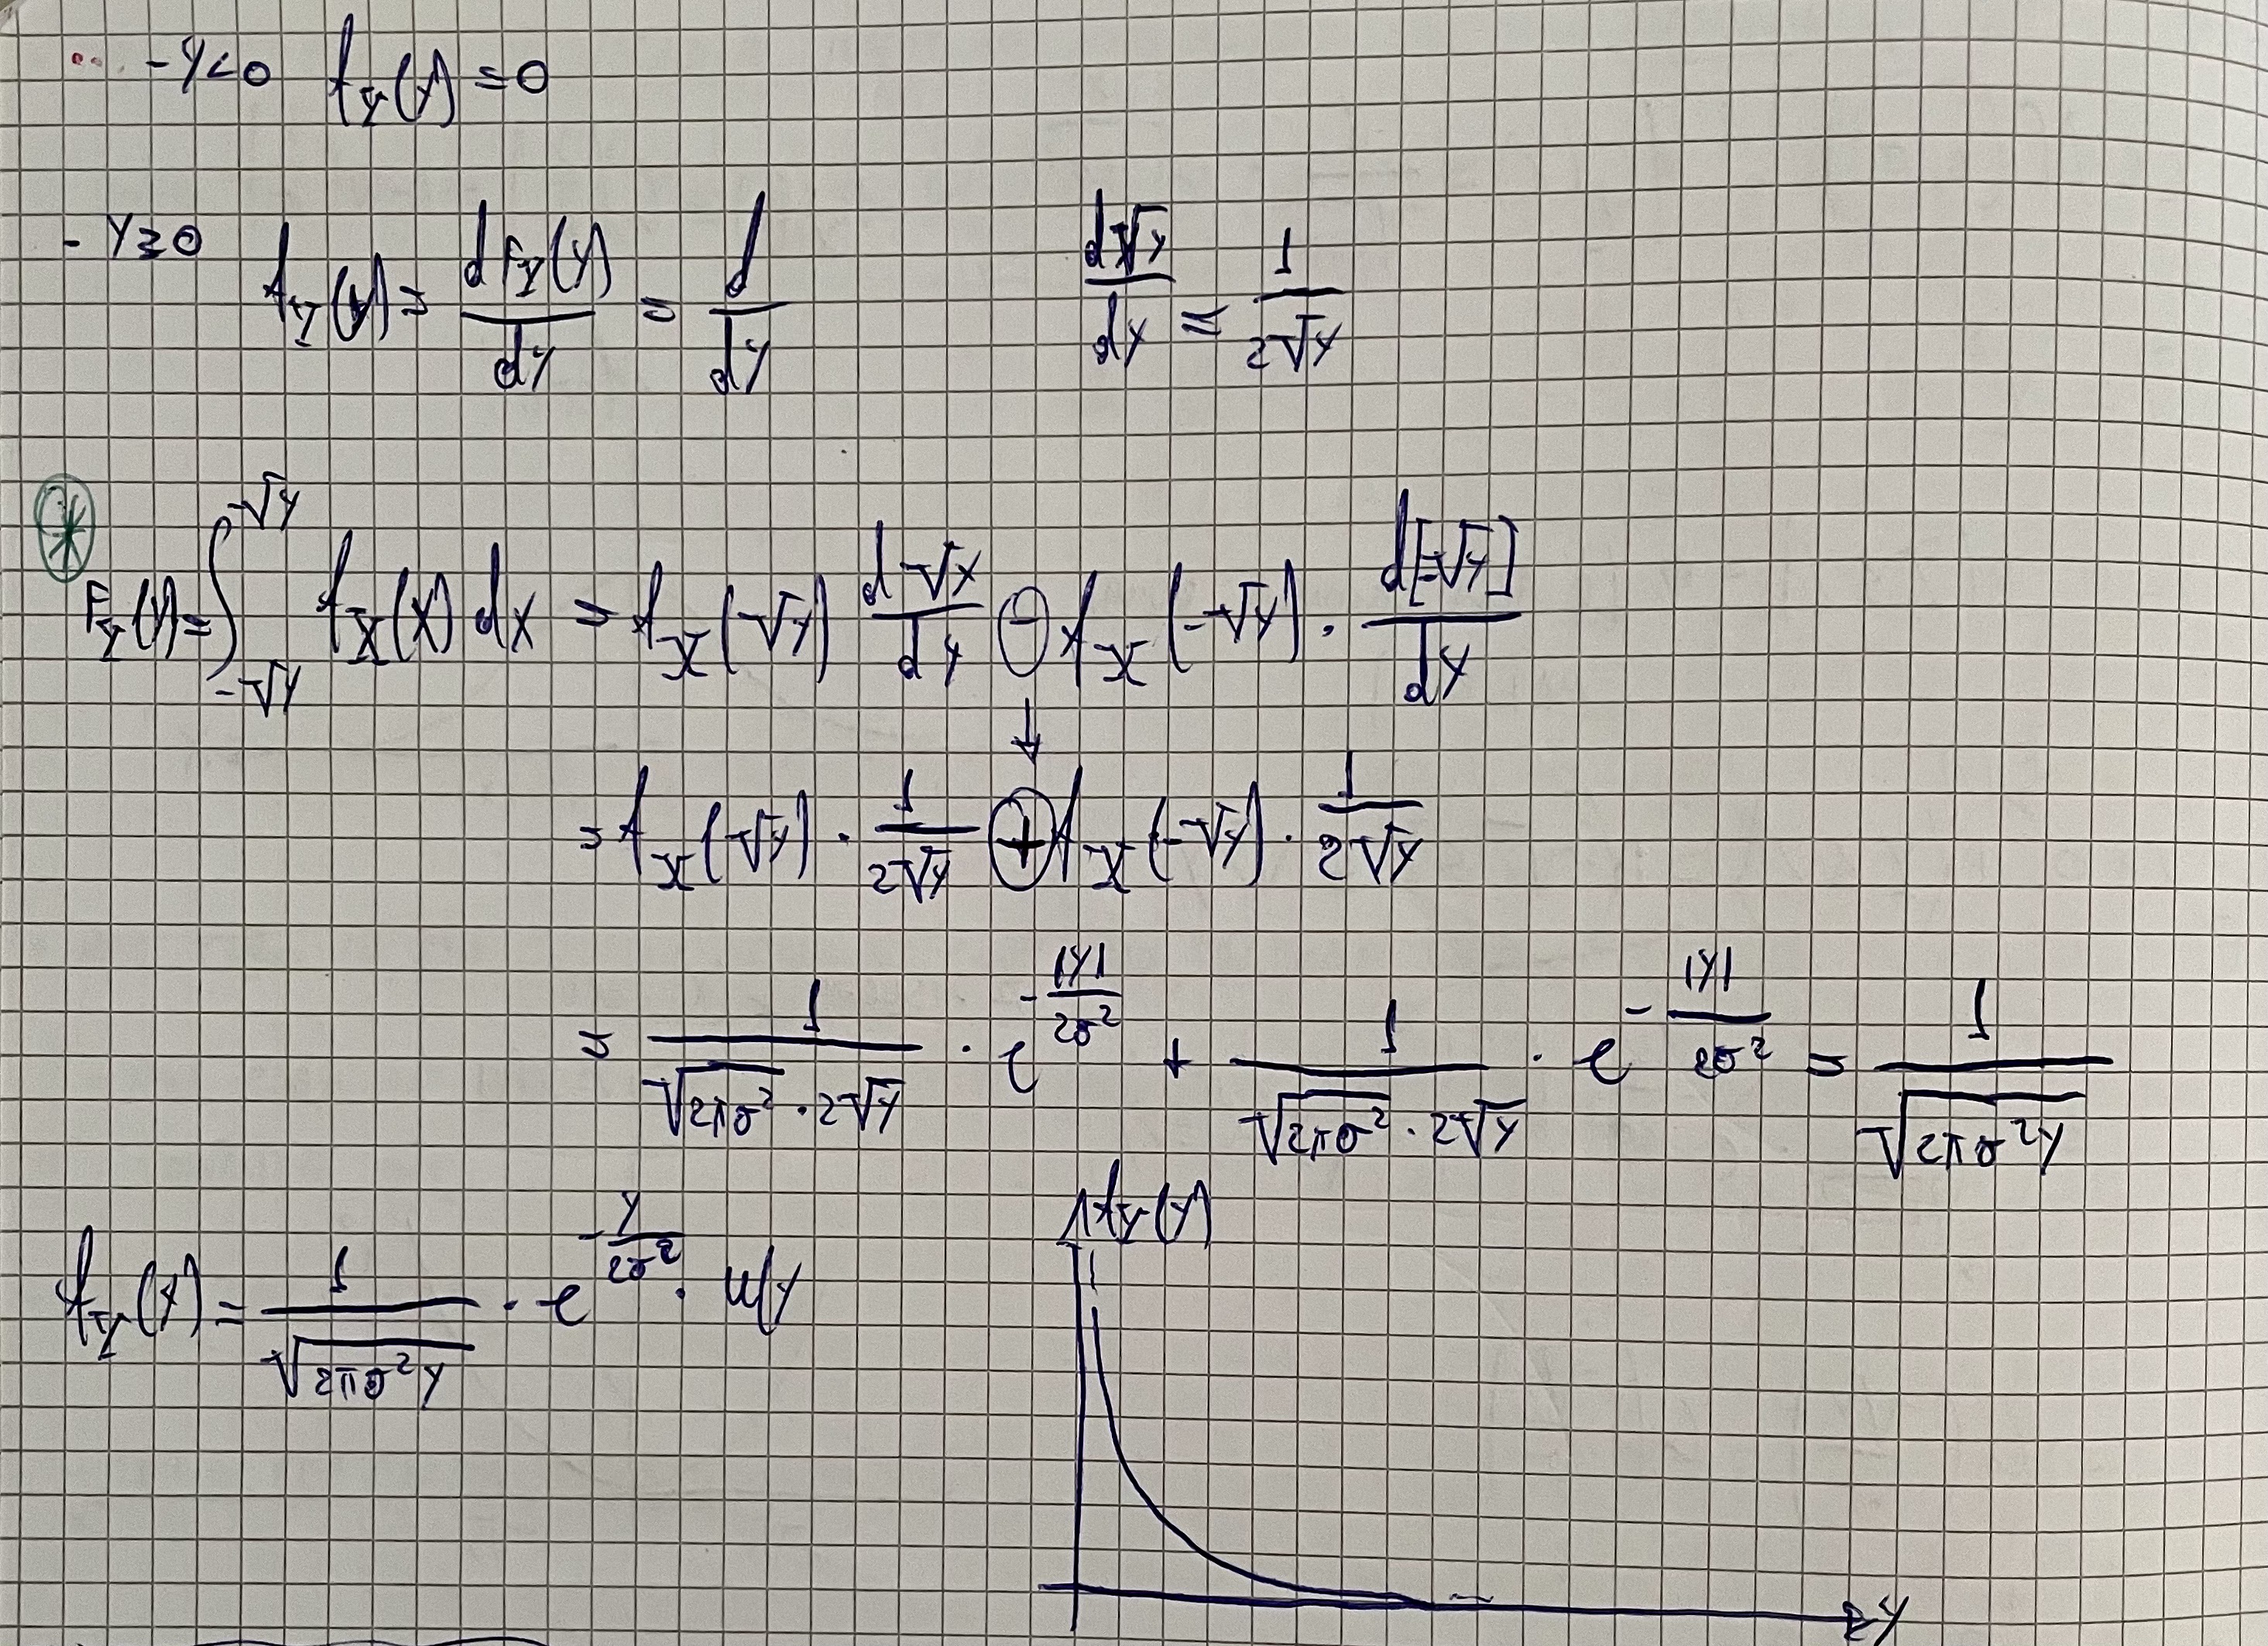 - y<0 f_Y(y) = 0
- y≥0 f_Y(y) = dF_Y(y)/dy = d/dy
d√y/dy = 1/(2√y)
F_Y(y) = ∫_{-√y}^{√y} f_X(x) dx = f_X(√y) d√y/dy ⊖ f_X(-√y) · d[-√y]/dy
↓
= f_X(√y) · 1/(2√y) ⊕ f_X(-√y) · 1/(2√y)
= 1/(√(2πσ²) · 2√y) · e^{-|y|/(2σ²)} + 1/(√(2πσ²) · 2√y) · e^{-|y|/(2σ²)} = 1/√(2πσ²y)
f_Y(y) = 1/√(2πσ²y) · e^{-y/(2σ²)} · u(y
f_Y(y)
y